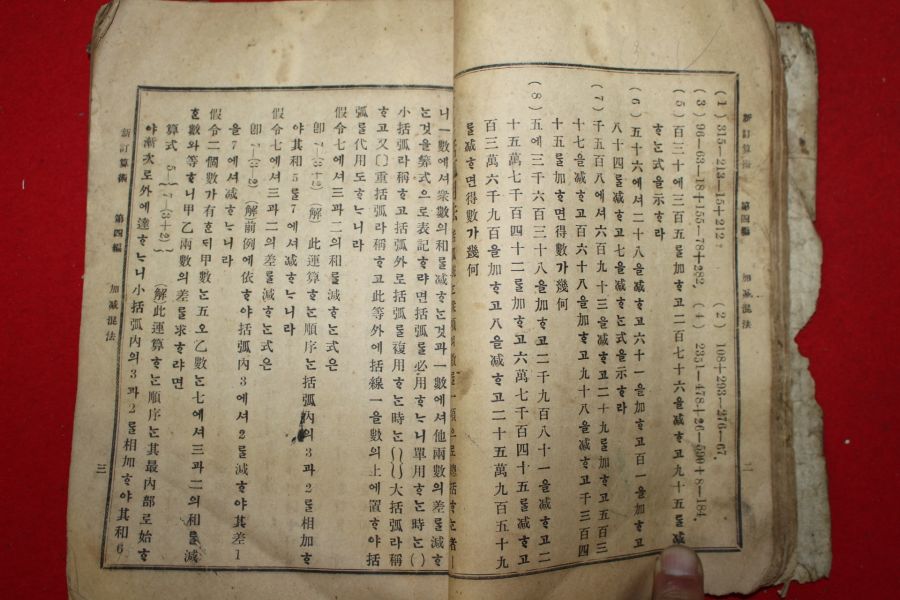 新訂算術 第四編 加減混法 二
(1) 315—213—15+212. (2) 108+293—276—67.
(3) 96—63—18+155—78+282. (4) 2331—478+26—590+8—184.
(5) 百三十에三百五를加ᄒᆞ고二百七十六을減ᄒᆞ고九十五를減
ᄒᆞᄂᆞᆫ式을示ᄒᆞ라
(6) 五十六에셔二十八을減ᄒᆞ고六十一을加ᄒᆞ고百一을加ᄒᆞ고
八十四를減ᄒᆞ고七을減ᄒᆞᄂᆞᆫ式을示ᄒᆞ라
(7) 千五百八에셔六百九十三을減ᄒᆞ고二十九를加ᄒᆞ고五百三
十七을減ᄒᆞ고百六十八을加ᄒᆞ고九十八을減ᄒᆞ고千三百四
十五를加ᄒᆞ면得數가幾何
(8) 五에三千六百三十八을加ᄒᆞ고二千九百八十一을減ᄒᆞ고二
十五萬七千百四十二를加ᄒᆞ고六萬七千百四十五를減ᄒᆞ고
百三萬六千九百을加ᄒᆞ고八을減ᄒᆞ고二十五萬九百五十九
를減ᄒᆞ면得數가幾何
니一數에셔衆數의和를減ᄒᆞᄂᆞᆫ것과一數에셔他兩數의差를減ᄒᆞ
ᄂᆞᆫ것을算式으로表記ᄒᆞ랴면括弧를必用ᄒᆞᄂᆞ니單用ᄒᆞᄂᆞᆫ時ᄂᆞᆫ( )
小括弧라稱ᄒᆞ고括弧外로括弧를複用ᄒᆞᄂᆞᆫ時ᄂᆞᆫ{ }大括弧라稱
ᄒᆞ고又〔 〕重括弧라稱ᄒᆞ고此等外에括線一을數의上에置ᄒᆞ야括
弧를代用도ᄒᆞᄂᆞ니라
假令七에셔三과二의和를減ᄒᆞᄂᆞᆫ式은
卽 7—(3+2) (解) 此運算ᄒᆞᄂᆞᆫ順序ᄂᆞᆫ括弧內의3과2를相加ᄒᆞ
야其和5를7에셔減ᄒᆞᄂᆞ니라
假令七에셔三과二의差를減ᄒᆞᄂᆞᆫ式은
卽 7—(3—2) (解)前例에依ᄒᆞ야括弧內3에셔2를減ᄒᆞ야其差1
을7에셔減ᄒᆞᄂᆞ니라
假令二個數가有ᄒᆞᆫᄃᆡ甲數ᄂᆞᆫ五오乙數ᄂᆞᆫ七에셔三과二의和를減
ᄒᆞᆫ數와等ᄒᆞ니甲乙兩數의差를求ᄒᆞ랴면
算式 5—{7—(3+2)} (解)此運算ᄒᆞᄂᆞᆫ順序ᄂᆞᆫ其最內部로始ᄒᆞ
야漸次로外에達ᄒᆞᄂᆞ니小括弧內의3과2를相加ᄒᆞ야其和6
新訂算術 第四編 加減混法 三